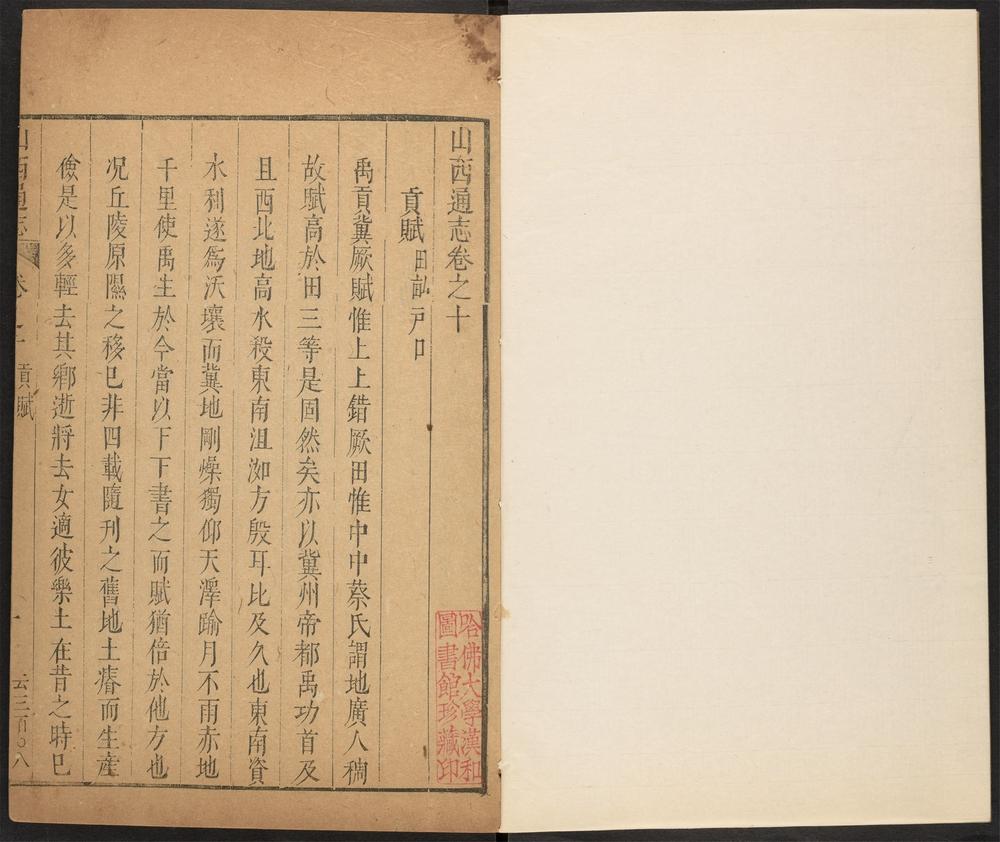 山西通志卷之十
貢賦 田畆 戸口
禹貢冀厥賦惟上上錯厥田惟中中蔡氏謂地廣人稠
故賦高於田三等是固然矣亦以冀州帝都禹功首及
且西北地高水殺東南沮洳方殷耳比及久也東南資
水利遂爲沃壤而冀地剛燥獨仰天澤踰月不雨赤地
千里使禹生於今當以下下書之而賦猶倍於他方也
况丘陵原隰之移已非四載隨刊之舊地土瘠而生產
儉是以多輕去其鄉逝將去女適彼樂土在昔之時巳
山西通志 卷之十 貢賦 一 云三百〇八
哈佛大學漢和
圖書館珍藏印